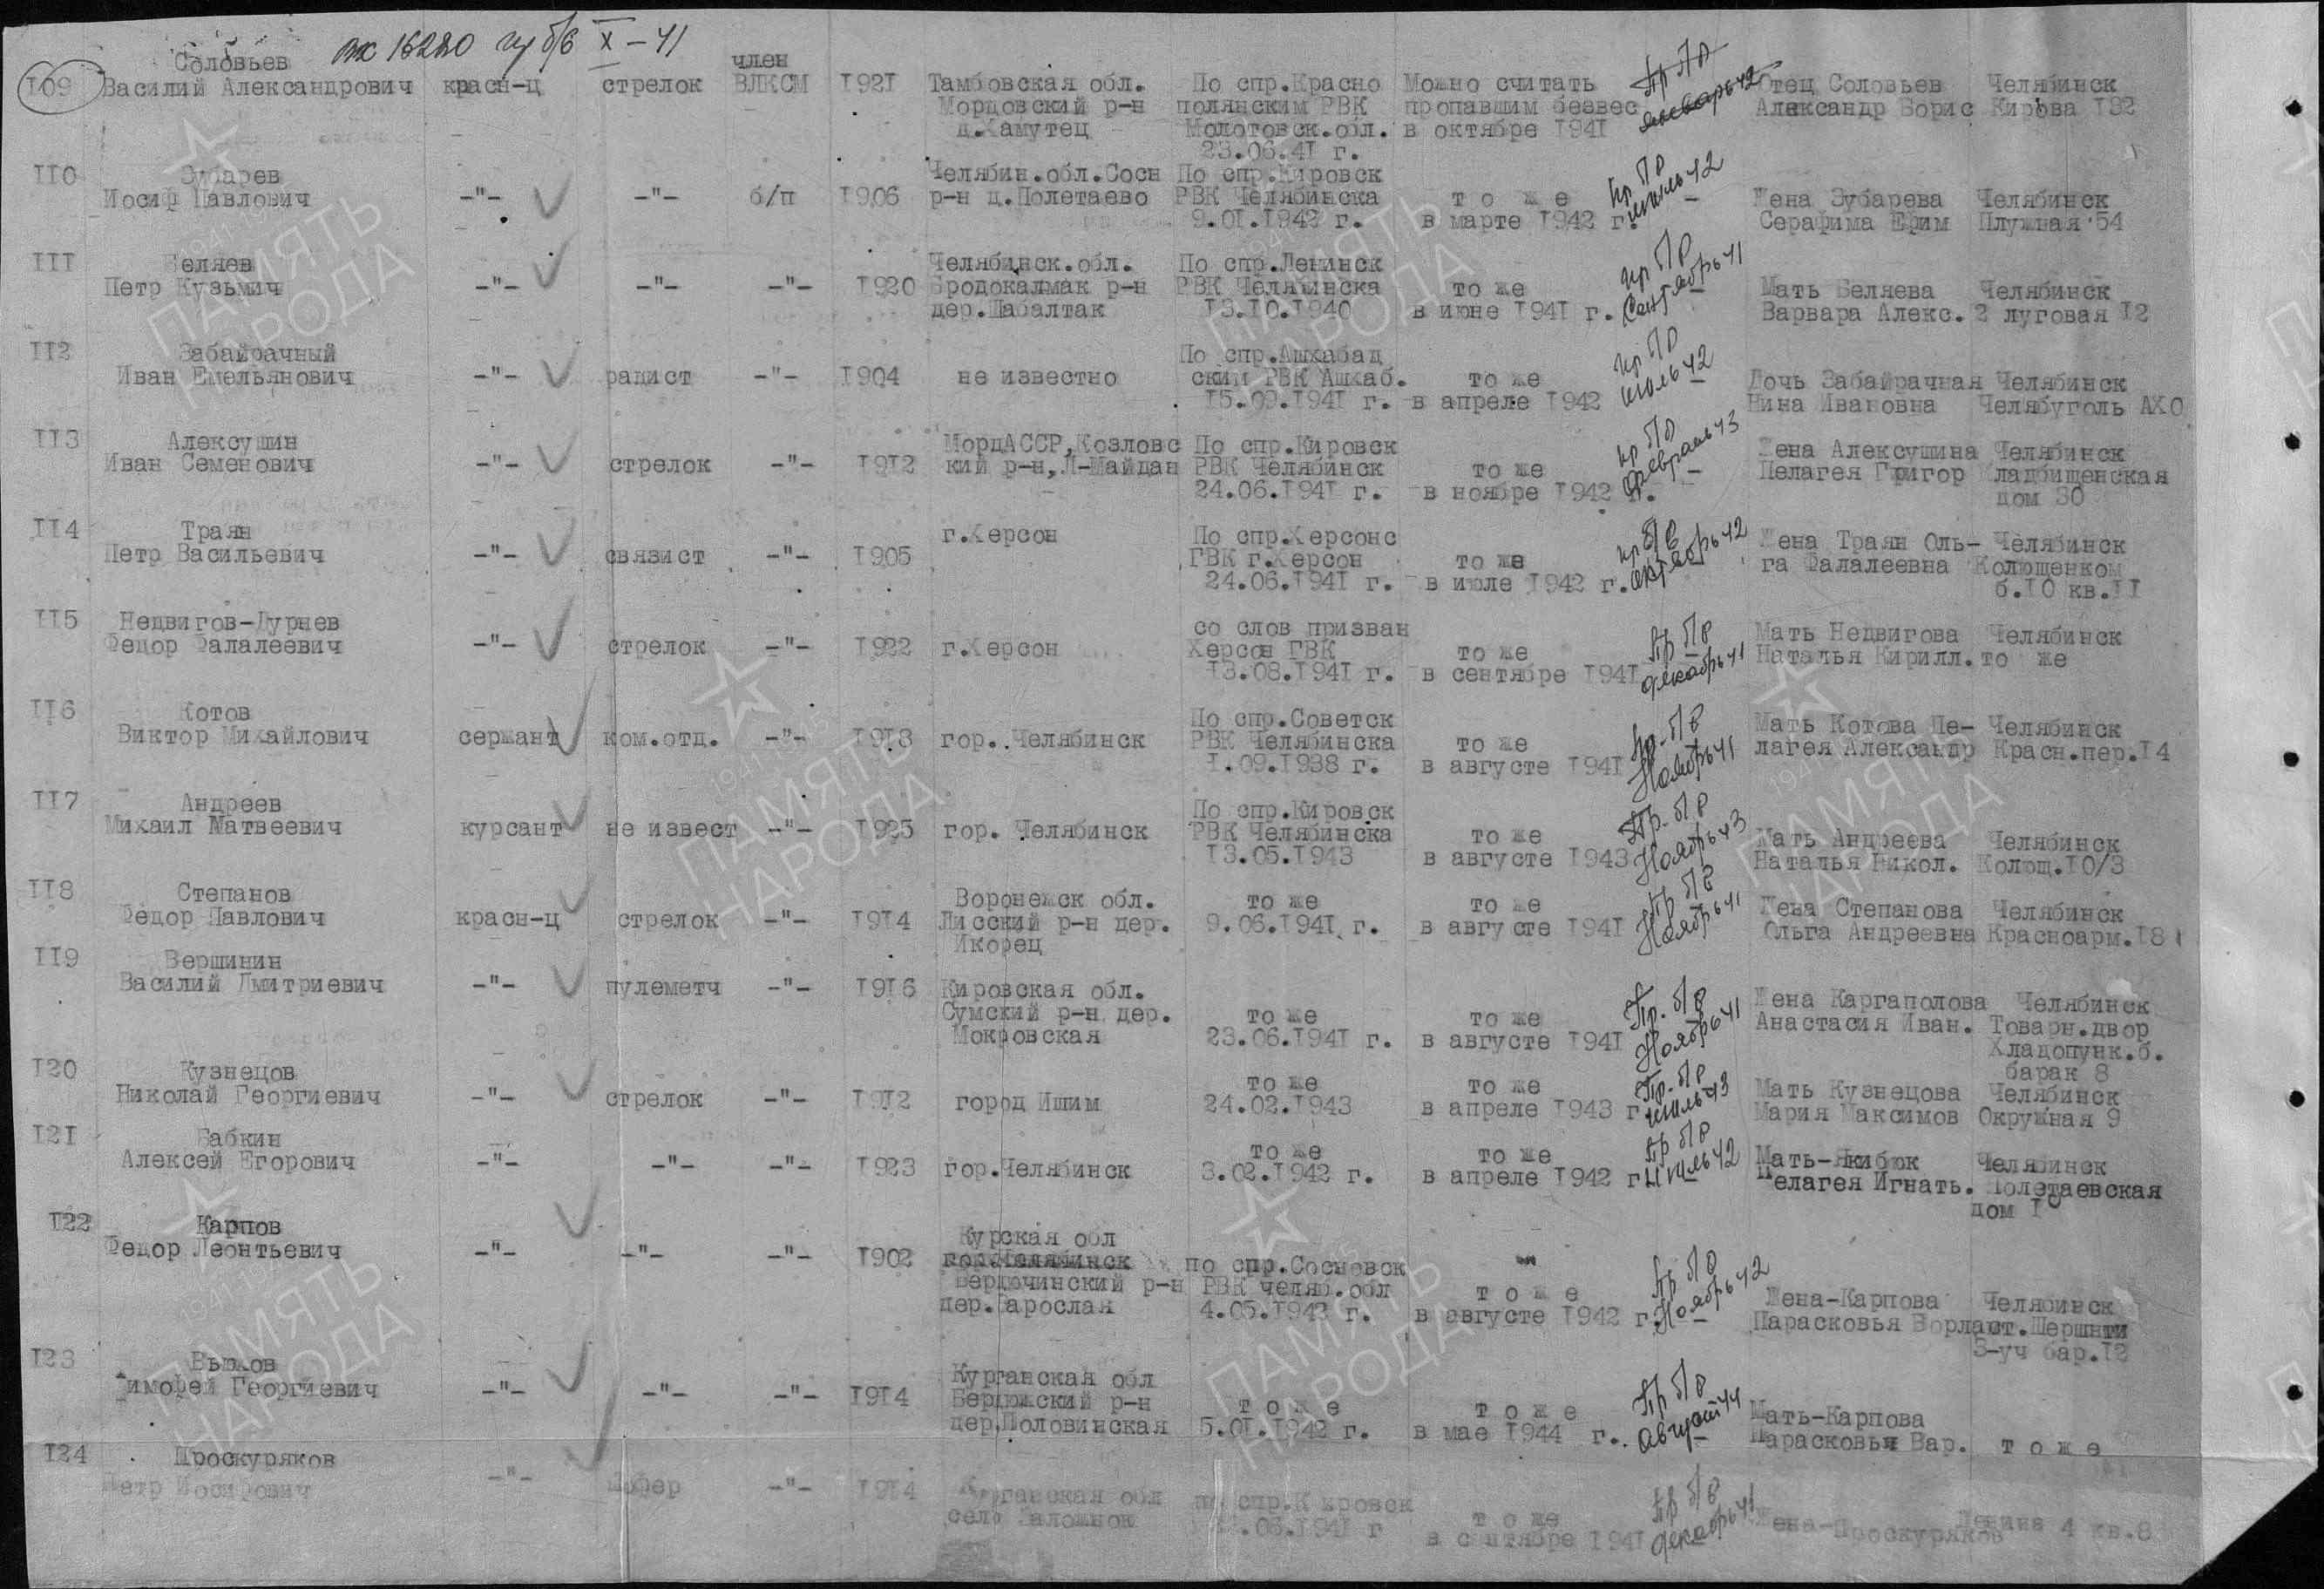 вх 16220 пр б/в X-41
109 Соловьев Василий Александрович красн-ц стрелок член ВЛКСМ 1921 Тамбовская обл. Мордовский р-н д.Камутец По спр.Красно полянским РВК Молотовск.обл. 23.06.41 г. Можно считать пропавшим безвес в октябре 1941 Пр б/в январь 42 Отец Соловьев Александр Борис Челябинск Кирова 182
110 Зубарев Иосиф Павлович -"- -"- б/п 1906 Челябин.обл.Сосн р-н д.Полетаево По спр.Кировск РВК Челябинска 9.01.1942 г. то же в марте 1942 г. пр б/в июнь 42 Жена Зубарева Серафима Ефим Челябинск Плужная 54
111 Беляев Петр Кузьмич -"- -"- -"- 1920 Челябинск.обл. Бродокалмак р-н дер.Шабалтак По спр.Ленинск РВК Челябинска 13.10.1940 то же в июне 1941 г. пр б/в сентябрь 41 Мать Беляева Варвара Алекс. Челябинск 2 луговая 12
112 Забайрачный Иван Емельянович -"- радист -"- 1904 не известно По спр.Ашхабад ским РВК Ашхаб. 15.09.1941 г. то же в апреле 1942 пр б/в июль 42 Дочь Забайрачная Нина Ивановна Челябинск Челябуголь АХО
113 Алексушин Иван Семенович -"- стрелок -"- 1912 МордАССР,Козловс кий р-н,Л-Майдан По спр.Кировск РВК Челябинск 24.06.1941 г. то же в ноябре 1942 г. пр б/в февраль 43 Жена Алексушина Пелагея Григор Челябинск Кладбищенская дом 30
114 Траян Петр Васильевич -"- связист -"- 1905 г.Херсон По спр.Херсонс ГВК г.Херсон 24.06.1941 г. то же в июле 1942 г. пр б/в октябрь 42 Жена Траян Оль- га Фалалеевна Челябинск Колющенком б.10 кв.11
115 Недвигов-Дурнев Федор Фалалеевич -"- стрелок -"- 1922 г.Херсон со слов призван Херсон ГВК 13.08.1941 г. то же в сентябре 1941 Пр б/в декабрь 41 Мать Недвигова Наталья Кирилл. Челябинск то же
116 Котов Виктор Михайлович сержант ком.отд. -"- 1918 гор. Челябинск По спр.Советск РВК Челябинска 1.09.1938 г. то же в августе 1941 Пр. б/в Ноябрь 41 Мать Котова Пе- лагея Александр Челябинск Красн.пер.14
117 Андреев Михаил Матвеевич курсант не извест -"- 1925 гор. Челябинск По спр.Кировск РВК Челябинска 13.05.1943 то же в августе 1943 Пр. б/в Ноябрь 43 Мать Андреева Наталья Никол. Челябинск Колющ.10/3
118 Степанов Федор Павлович красн-ц стрелок -"- 1914 Воронежск обл. Лисский р-н дер. Икорец то же 9.06.1941 г. то же в августе 1941 Пр б/в Ноябрь 41 Жена Степанова Ольга Андреевна Челябинск Красноарм.181
119 Вершинин Василий Дмитриевич -"- пулеметч -"- 1916 Кировская обл. Сумский р-н дер. Мокровская то же 23.06.1941 г. то же в августе 1941 Пр. б/в Ноябрь 41 Жена Каргаполова Анастасия Иван. Челябинск Товарн.двор Хладопунк.б. барак 8
120 Кузнецов Николай Георгиевич -"- стрелок -"- 1912 город Ишим то же 24.02.1943 то же в апреле 1943 г Пр. б/в июль 43 Мать Кузнецова Мария Максимов Челябинск Окружная 9
121 Бабкин Алексей Егорович -"- -"- -"- 1923 гор.Челябинск то же 3.02.1942 г. то же в апреле 1942 г Пр б/в июль 42 Мать-Якибюк Пелагея Игнать. Челябинск Полетаевская дом 10
122 Карпов Федор Леонтьевич -"- -"- -"- 1902 Курская обл гор.Челябинск Вердючинский р-н дер.Гарослая по спр.Сосновск РВК челяб.обл 4.05.1942 г. то же в августе 1942 г. Пр б/в Ноябрь 42 Жена-Карпова Парасковья Ворла Челябинск ст.Шершнти 3-уч бар.12
123 Вьюков Тимофей Георгиевич -"- -"- -"- 1914 Курганская обл Бердюжский р-н дер.Половинская то же 5.01.1942 г. то же в мае 1944 г. Пр б/в август 44 Мать-Карпова Парасковья Вар. то же
124 Проскуряков Петр Иосифович -"- шофер -"- 1914 Курганская обл село Заложнок по спр.Кировск .03.1941 г то же в сентябре 1941 Пр б/в декабрь 41 Жена-Проскуряков Ленина 4 кв.8
ПАМЯТЬ НАРОДА
1941-1945